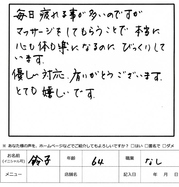 毎日疲れる事が多いのですが
マッサージをしてもらうことで本当に
心も体も楽になるのにびっくりして
います。
優しい対応、有りがとうございます。
とても嬉しいです。
※ あなた様の声を、ホームページなどでご紹介してもよろしいですか？ □はい □匿名で □ダメ
お名前 鈴子 年齢 64 職業 なし
メニュー 店舗名 記入日 年 月 日